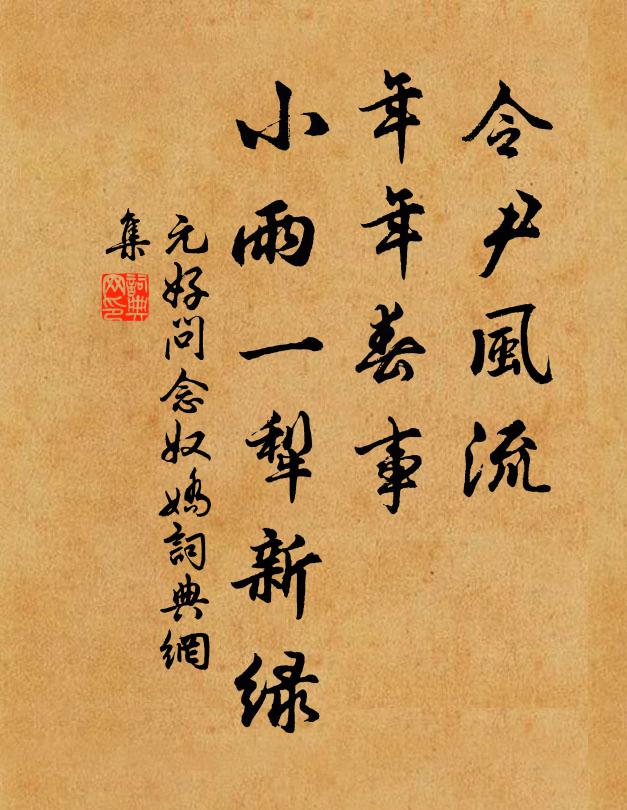 令尹風流
年年春事
小雨一犂新緑
元好問念奴嬌詞典網
集
詞典網印